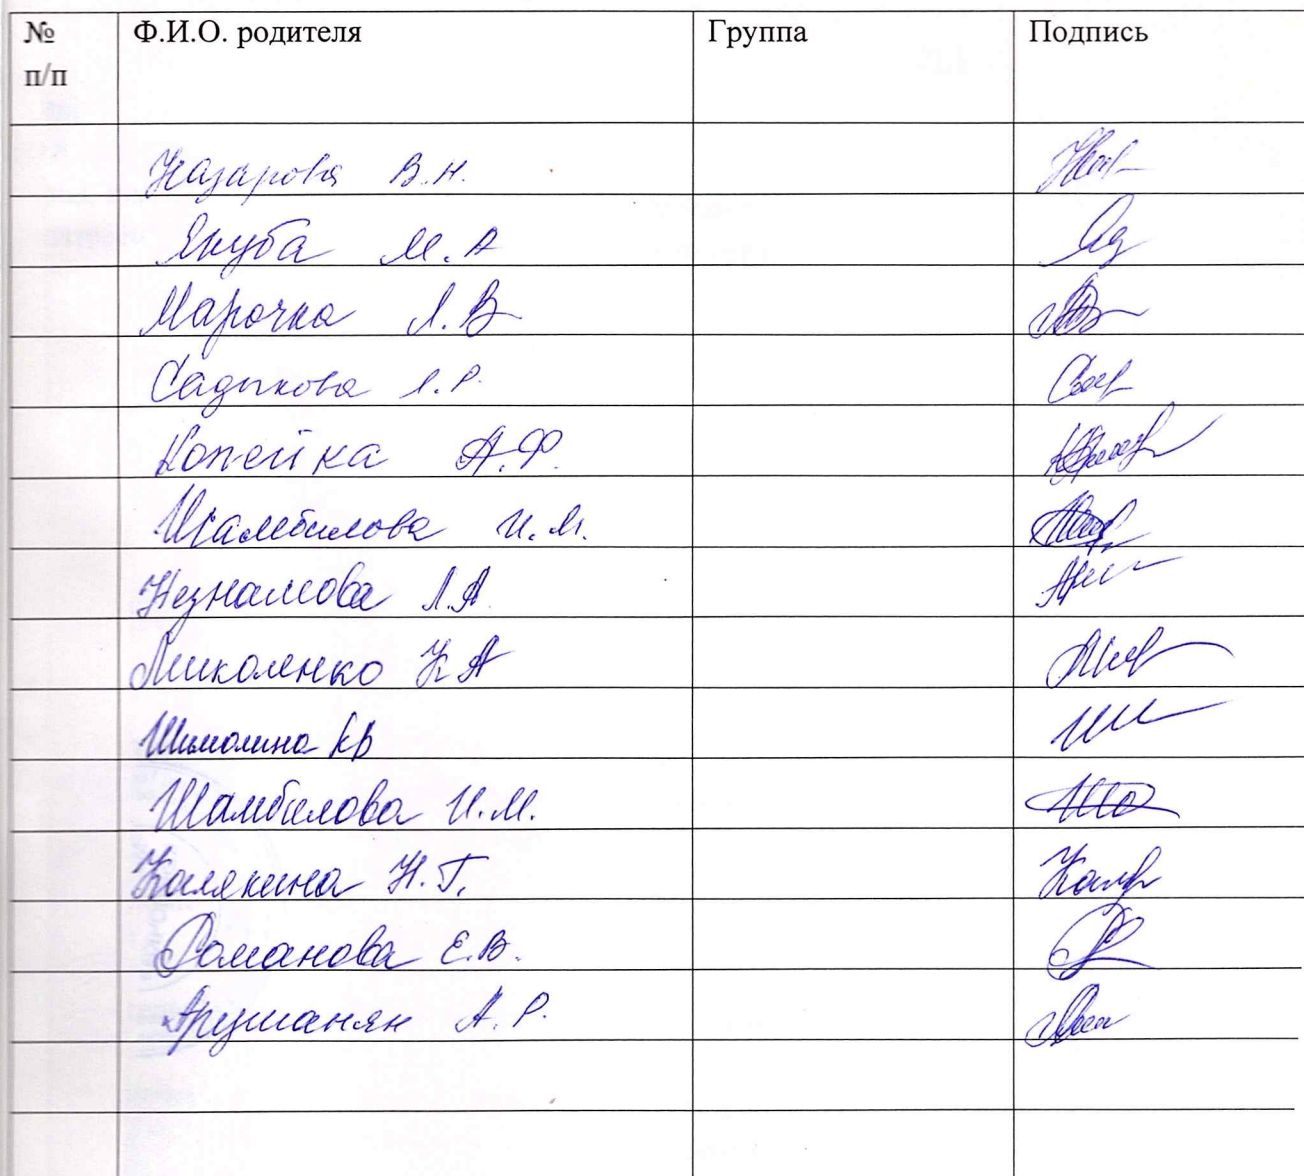 № п/п Ф.И.О. родителя Группа Подпись
Назарова В.Н.
Якуба М.А
Марочка Л.В
Садыкова Л.Р.
Копейка А.Ф.
Шамбилова И.М.
Незнамова Л.А
Миколенко К А
Шималина КВ
Шамбилова И.М.
Калякина Н.Г.
Романова Е.В.
Арушанян А.Р.